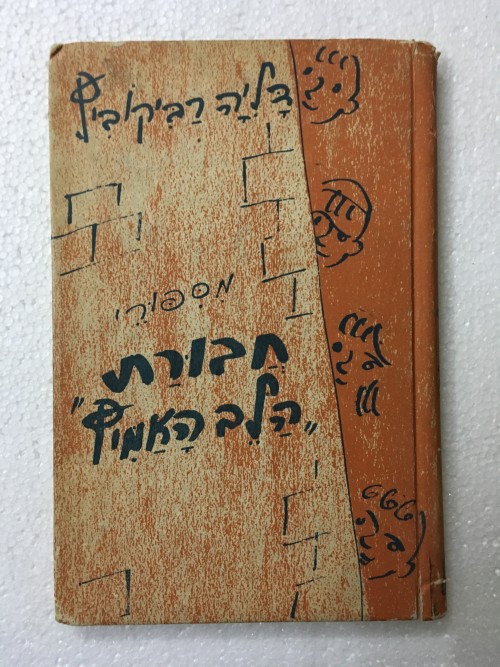 דָּלִיָה רַבִּיקוֹבִיץ
מִסִּפּוּרֵי
חֲבוּרַת
"הַלֵּב הָאַמִּיץ"